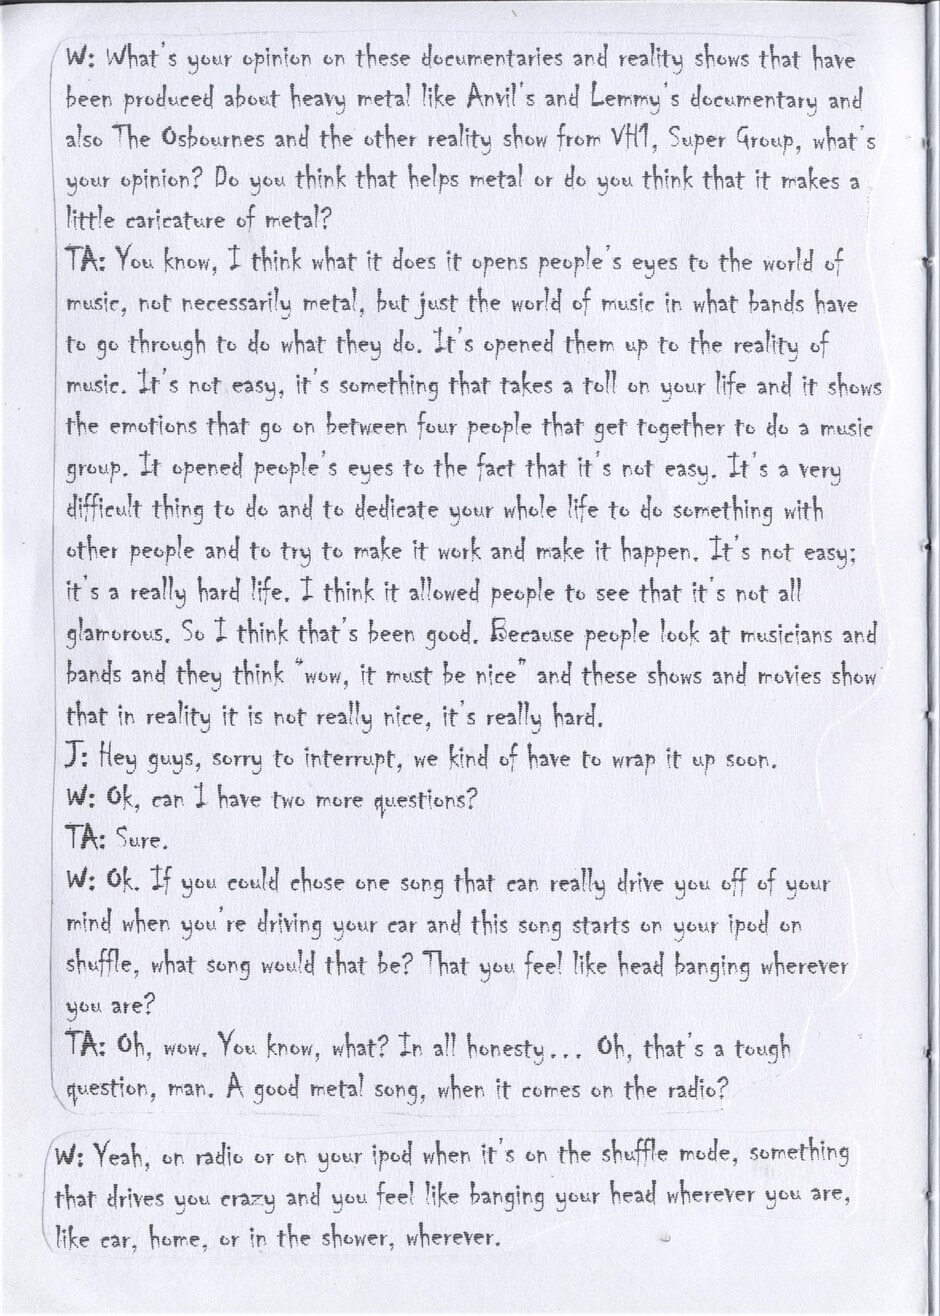 W: What's your opinion on these documentaries and reality shows that have
been produced about heavy metal like Anvil's and Lemmy's documentary and
also The Osbournes and the other reality show from VH1, Super Group, what's
your opinion? Do you think that helps metal or do you think that it makes a
little caricature of metal?
TA: You know, I think what it does it opens people's eyes to the world of
music, not necessarily metal, but just the world of music in what bands have
to go through to do what they do. It's opened them up to the reality of
music. It's not easy, it's something that takes a toll on your life and it shows
the emotions that go on between four people that get together to do a music
group. It opened people's eyes to the fact that it's not easy. It's a very
difficult thing to do and to dedicate your whole life to do something with
other people and to try to make it work and make it happen. It's not easy;
it's a really hard life. I think it allowed people to see that it's not all
glamorous. So I think that's been good. Because people look at musicians and
bands and they think "wow, it must be nice" and these shows and movies show
that in reality it is not really nice, it's really hard.
J: Hey guys, sorry to interrupt, we kind of have to wrap it up soon.
W: Ok, can I have two more questions?
TA: Sure.
W: Ok. If you could chose one song that can really drive you off of your
mind when you're driving your car and this song starts on your ipod on
shuffle, what song would that be? That you feel like head banging wherever
you are?
TA: Oh, wow. You know, what? In all honesty... Oh, that's a tough
question, man. A good metal song, when it comes on the radio?
W: Yeah, on radio or on your ipod when it's on the shuffle mode, something
that drives you crazy and you feel like banging your head wherever you are,
like car, home, or in the shower, wherever.